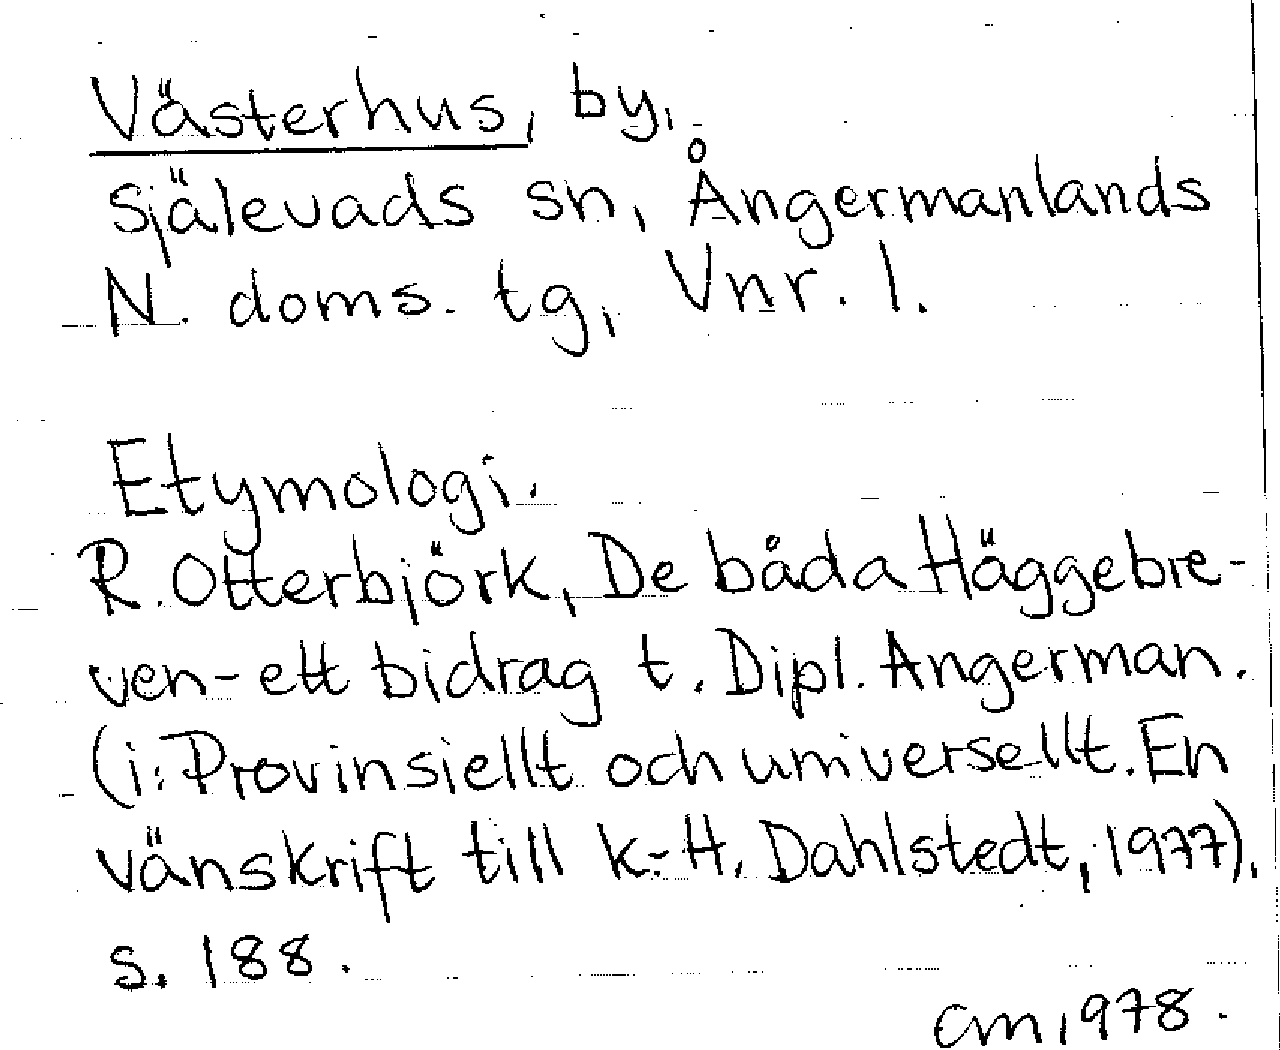 Västerhus, by,
Själevads sn, Ångermanlands
N. doms. tg, Vnr. 1.
Etymologi.
R. Otterbjörk, De båda Häggebre-
ven- ett bidrag t. Dipl. Angerman.
(i: Provinsiellt och universellt. En
vänskrift till K-H. Dahlstedt, 1977).
s. 188.
Cm 1978.